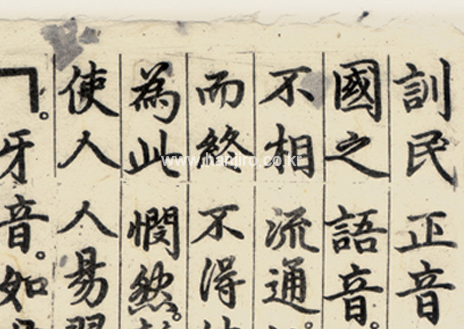 訓民正音
國之語音。
不相流通。
而終不得
為此憫然。
使人人易習
ㄱ。牙音。如
www.hanjiro.co.kr